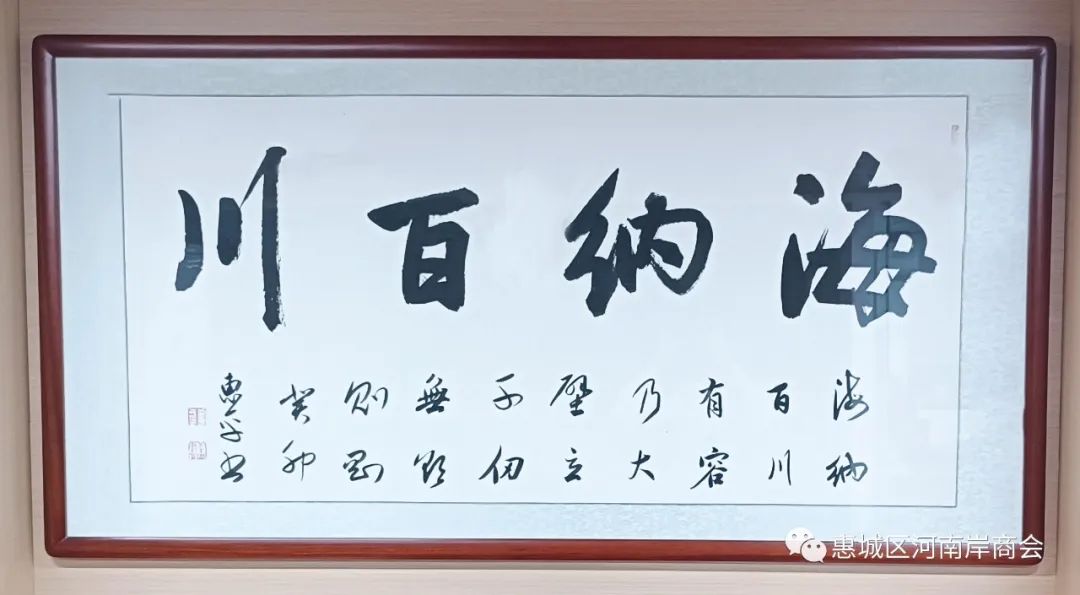 海纳百川
海纳
百川
有容
乃大
壁立
千仞
無欲
则刚
癸卯
惠城区河南岸商会